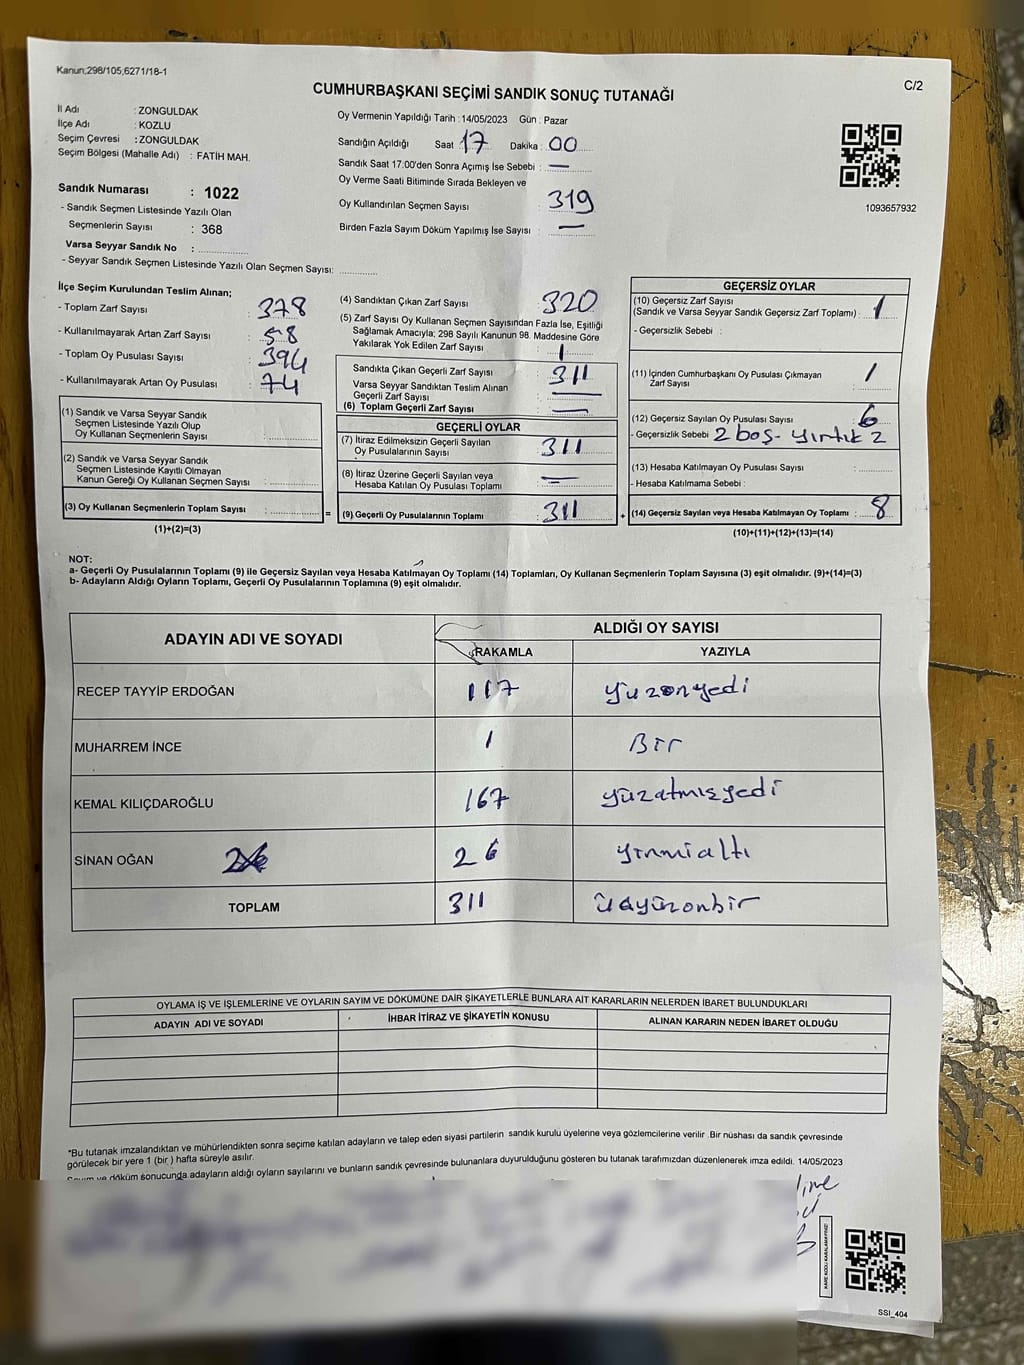 Kanun;298/105,6271/18-1
C/2
CUMHURBAŞKANI SEÇİMİ SANDIK SONUÇ TUTANAĞI
İl Adı : ZONGULDAK
İlçe Adı : KOZLU
Seçim Çevresi : ZONGULDAK
Seçim Bölgesi (Mahalle Adı) : FATİH MAH.
Sandık Numarası : 1022
- Sandık Seçmen Listesinde Yazılı Olan
Seçmenlerin Sayısı : 368
Varsa Seyyar Sandık No :
- Seyyar Sandık Seçmen Listesinde Yazılı Olan Seçmen Sayısı:
Oy Vermenin Yapıldığı Tarih : 14/05/2023 Gün : Pazar
Sandığın Açıldığı Saat 17 Dakika : 00
Sandık Saat 17:00'den Sonra Açımış İse Sebebi : —
Oy Verme Saati Bitiminde Sırada Bekleyen ve
Oy Kullandırılan Seçmen Sayısı : 319
Birden Fazla Sayım Döküm Yapılmış İse Sayısı : —
1093657932
İlçe Seçim Kurulundan Teslim Alınan;
- Toplam Zarf Sayısı : 378
- Kullanılmayarak Artan Zarf Sayısı : 58
- Toplam Oy Pusulası Sayısı : 394
- Kullanılmayarak Artan Oy Pusulası : 74
(1) Sandık ve Varsa Seyyar Sandık
Seçmen Listesinde Yazılı Olup
Oy Kullanan Seçmenlerin Sayısı :
(2) Sandık ve Varsa Seyyar Sandık
Seçmen Listesinde Kayıtlı Olmayan
Kanun Gereği Oy Kullanan Seçmen Sayısı :
(3) Oy Kullanan Seçmenlerin Toplam Sayısı : =
(1)+(2)=(3)
(4) Sandıktan Çıkan Zarf Sayısı : 320
(5) Zarf Sayısı Oy Kullanan Seçmen Sayısından Fazla İse, Eşitliği
Sağlamak Amacıyla; 298 Sayılı Kanunun 98. Maddesine Göre
Yakılarak Yok Edilen Zarf Sayısı : 1
Sandıkta Çıkan Geçerli Zarf Sayısı : 311
Varsa Seyyar Sandıktan Teslim Alınan
Geçerli Zarf Sayısı : —
(6) Toplam Geçerli Zarf Sayısı : —
GEÇERLİ OYLAR
(7) İtiraz Edilmeksizin Geçerli Sayılan
Oy Pusulalarının Sayısı : 311
(8) İtiraz Üzerine Geçerli Sayılan veya
Hesaba Katılan Oy Pusulası Toplamı : —
(9) Geçerli Oy Pusulalarının Toplamı : 311 +
GEÇERSİZ OYLAR
(10) Geçersiz Zarf Sayısı
(Sandık ve Varsa Seyyar Sandık Geçersiz Zarf Toplamı) : 1
- Geçersizlik Sebebi :
(11) İçinden Cumhurbaşkanı Oy Pusulası Çıkmayan
Zarf Sayısı : 1
(12) Geçersiz Sayılan Oy Pusulası Sayısı : 6
- Geçersizlik Sebebi 2 boş - yırtık 2
(13) Hesaba Katılmayan Oy Pusulası Sayısı :
- Hesaba Katılmama Sebebi :
(14) Geçersiz Sayılan veya Hesaba Katılmayan Oy Toplamı : 8
(10)+(11)+(12)+(13)=(14)
NOT:
a- Geçerli Oy Pusulalarının Toplamı (9) ile Geçersiz Sayılan veya Hesaba Katılmayan Oy Toplamı (14) Toplamları, Oy Kullanan Seçmenlerin Toplam Sayısına (3) eşit olmalıdır. (9)+(14)=(3)
b- Adayların Aldığı Oyların Toplamı, Geçerli Oy Pusulalarının Toplamına (9) eşit olmalıdır.
ADAYIN ADI VE SOYADI
ALDIĞI OY SAYISI
RAKAMLA YAZIYLA
RECEP TAYYİP ERDOĞAN 117 yüzonyedi
MUHARREM İNCE 1 Bir
KEMAL KILIÇDAROĞLU 167 yüzatmışyedi
SİNAN OĞAN 26 26 yirmialtı
TOPLAM 311 üçyüzonbir
OYLAMA İŞ VE İŞLEMLERİNE VE OYLARIN SAYIM VE DÖKÜMÜNE DAİR ŞİKAYETLERLE BUNLARA AİT KARARLARIN NELERDEN İBARET BULUNDUKLARI
ADAYIN ADI VE SOYADI İHBAR İTİRAZ VE ŞİKAYETİN KONUSU ALINAN KARARIN NEDEN İBARET OLDUĞU
*Bu tutanak imzalandıktan ve mühürlendikten sonra seçime katılan adayların ve talep eden siyasi partilerin sandık kurulu üyelerine veya gözlemcilerine verilir .Bir nüshası da sandık çevresinde
görülecek bir yere 1 (bir ) hafta süreyle asılır.
Sayım ve döküm sonucunda adayların aldığı oyların sayılarını ve bunların sandık çevresinde bulunanlara duyurulduğunu gösteren bu tutanak tarafımızdan düzenlenerek imza edildi. 14/05/2023
SSI_404